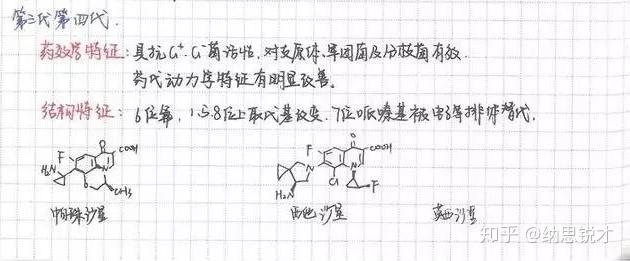 第三代第四代.
药效学特征: 具抗G⁺.G⁻菌活性, 对支原体、军团菌及分枝菌有效.
药代动力学特征有明显改善.
结构特征: 6位氟, 1.5.8位上取代基改变, 7位哌嗪基被电子等排体替代.
F O COOH
H₂N N
O CH₃
F O COOH
N Cl N
H₂N F
帕珠沙星 西他沙星 莫西沙星
知乎 @纳思锐才